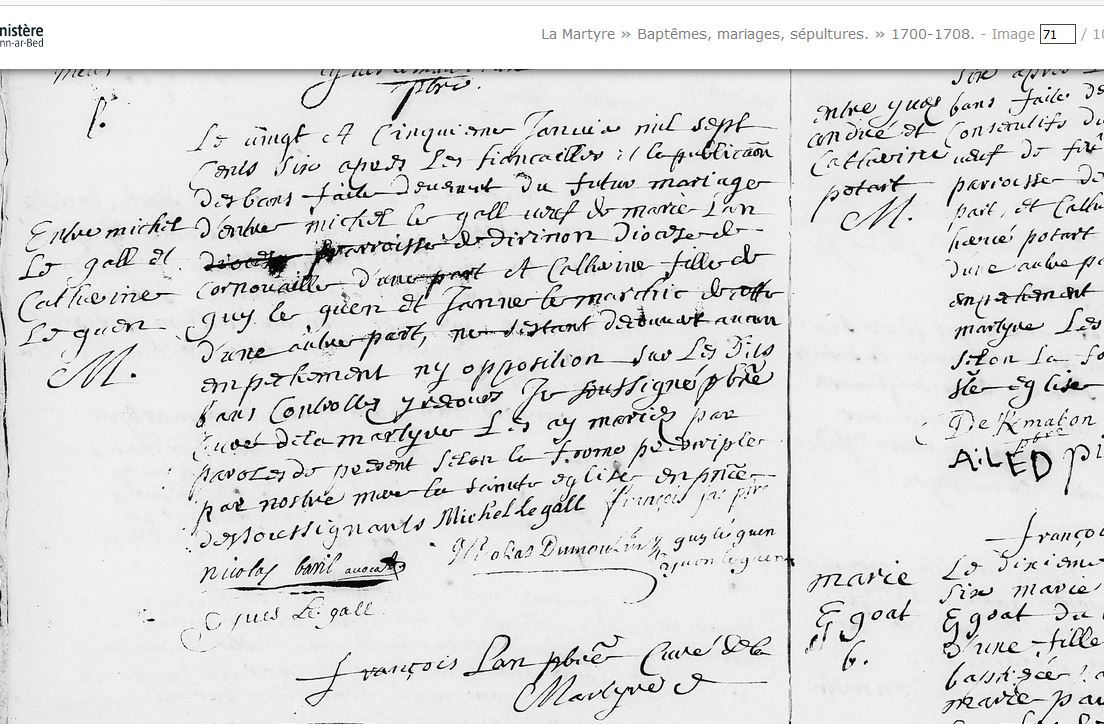 nistère
nn-ar-Bed
La Martyre » Baptêmes, mariages, sépultures. » 1700-1708. - Image 71 / 10
pbre.
Le vingt et Cinquieme Janvier mil sept
Cents six apres Les fiancailles et la publicaon
des bans faite devemt du futur mariage
Entre michel
Le gall et
Catherine
Le guen
M.
d'entre michel le gall veuf de marie Lan
diocese parroisse de dirinon Diocese de
cornouaille d'une part et Catherine fille de
guy le guen et Janne le marchic de cette
d'une autre part, ne s'estant decouvert aucun
empechement ny opposition sur Les dits
bans Controlles y Je soussigné pbre
Curé de la martyre Les ay mariés par
paroles de present selon la forme prescripte
par nostre mere la sainte eglise en pnce
des soussignants Michel le gall françois
Nicolas Dumoulin guy le guen
yvon le guen
nicolas baril avocat
yves Le gall
françois Lan pbre Curé de la
Martyre
entre yves
condre et
Catherine
potart
M.
six apres
bans faite de
Consecutifs du
veuf de
parroisse de
part, et Cathe
herué potart
d'une autre pa
empechement
martyre Les
selon la fo
ste eglise
De Kmabon
pbre
A:LED pi
françoi
marie
Egoat
b.
Le dixieme
six marie
Egoat du
d'une fille
marie pa